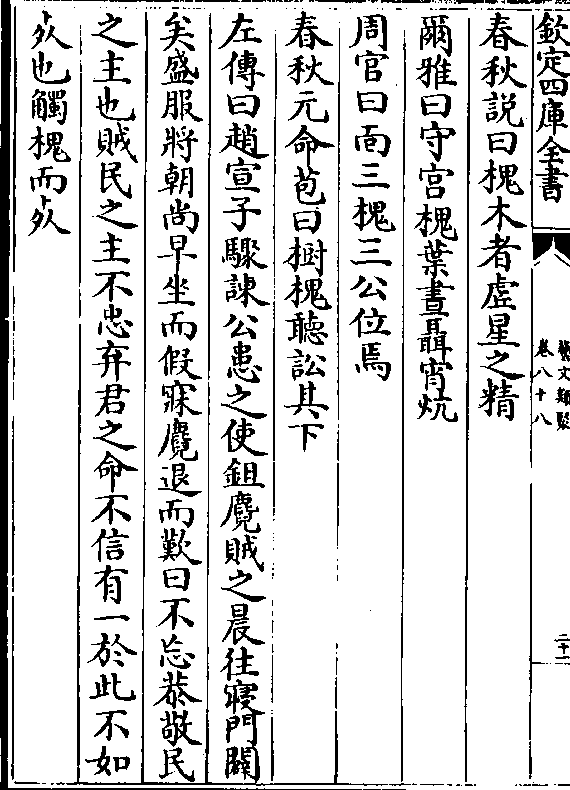 欽定四庫全書
藝文類聚
卷八十八
二十一
春秋説曰槐木者虚星之精
爾雅曰守宫槐葉晝聶宵炕
周官曰面三槐三公位焉
春秋元命苞曰樹槐聽訟其下
左傳曰趙宣子驟諫公患之使鉏麑賊之晨往寢門闢
矣盛服將朝尚早坐而假寐麑退而歎曰不忘恭敬民
之主也賊民之主不忠弃君之命不信有一於此不如
死也觸槐而死